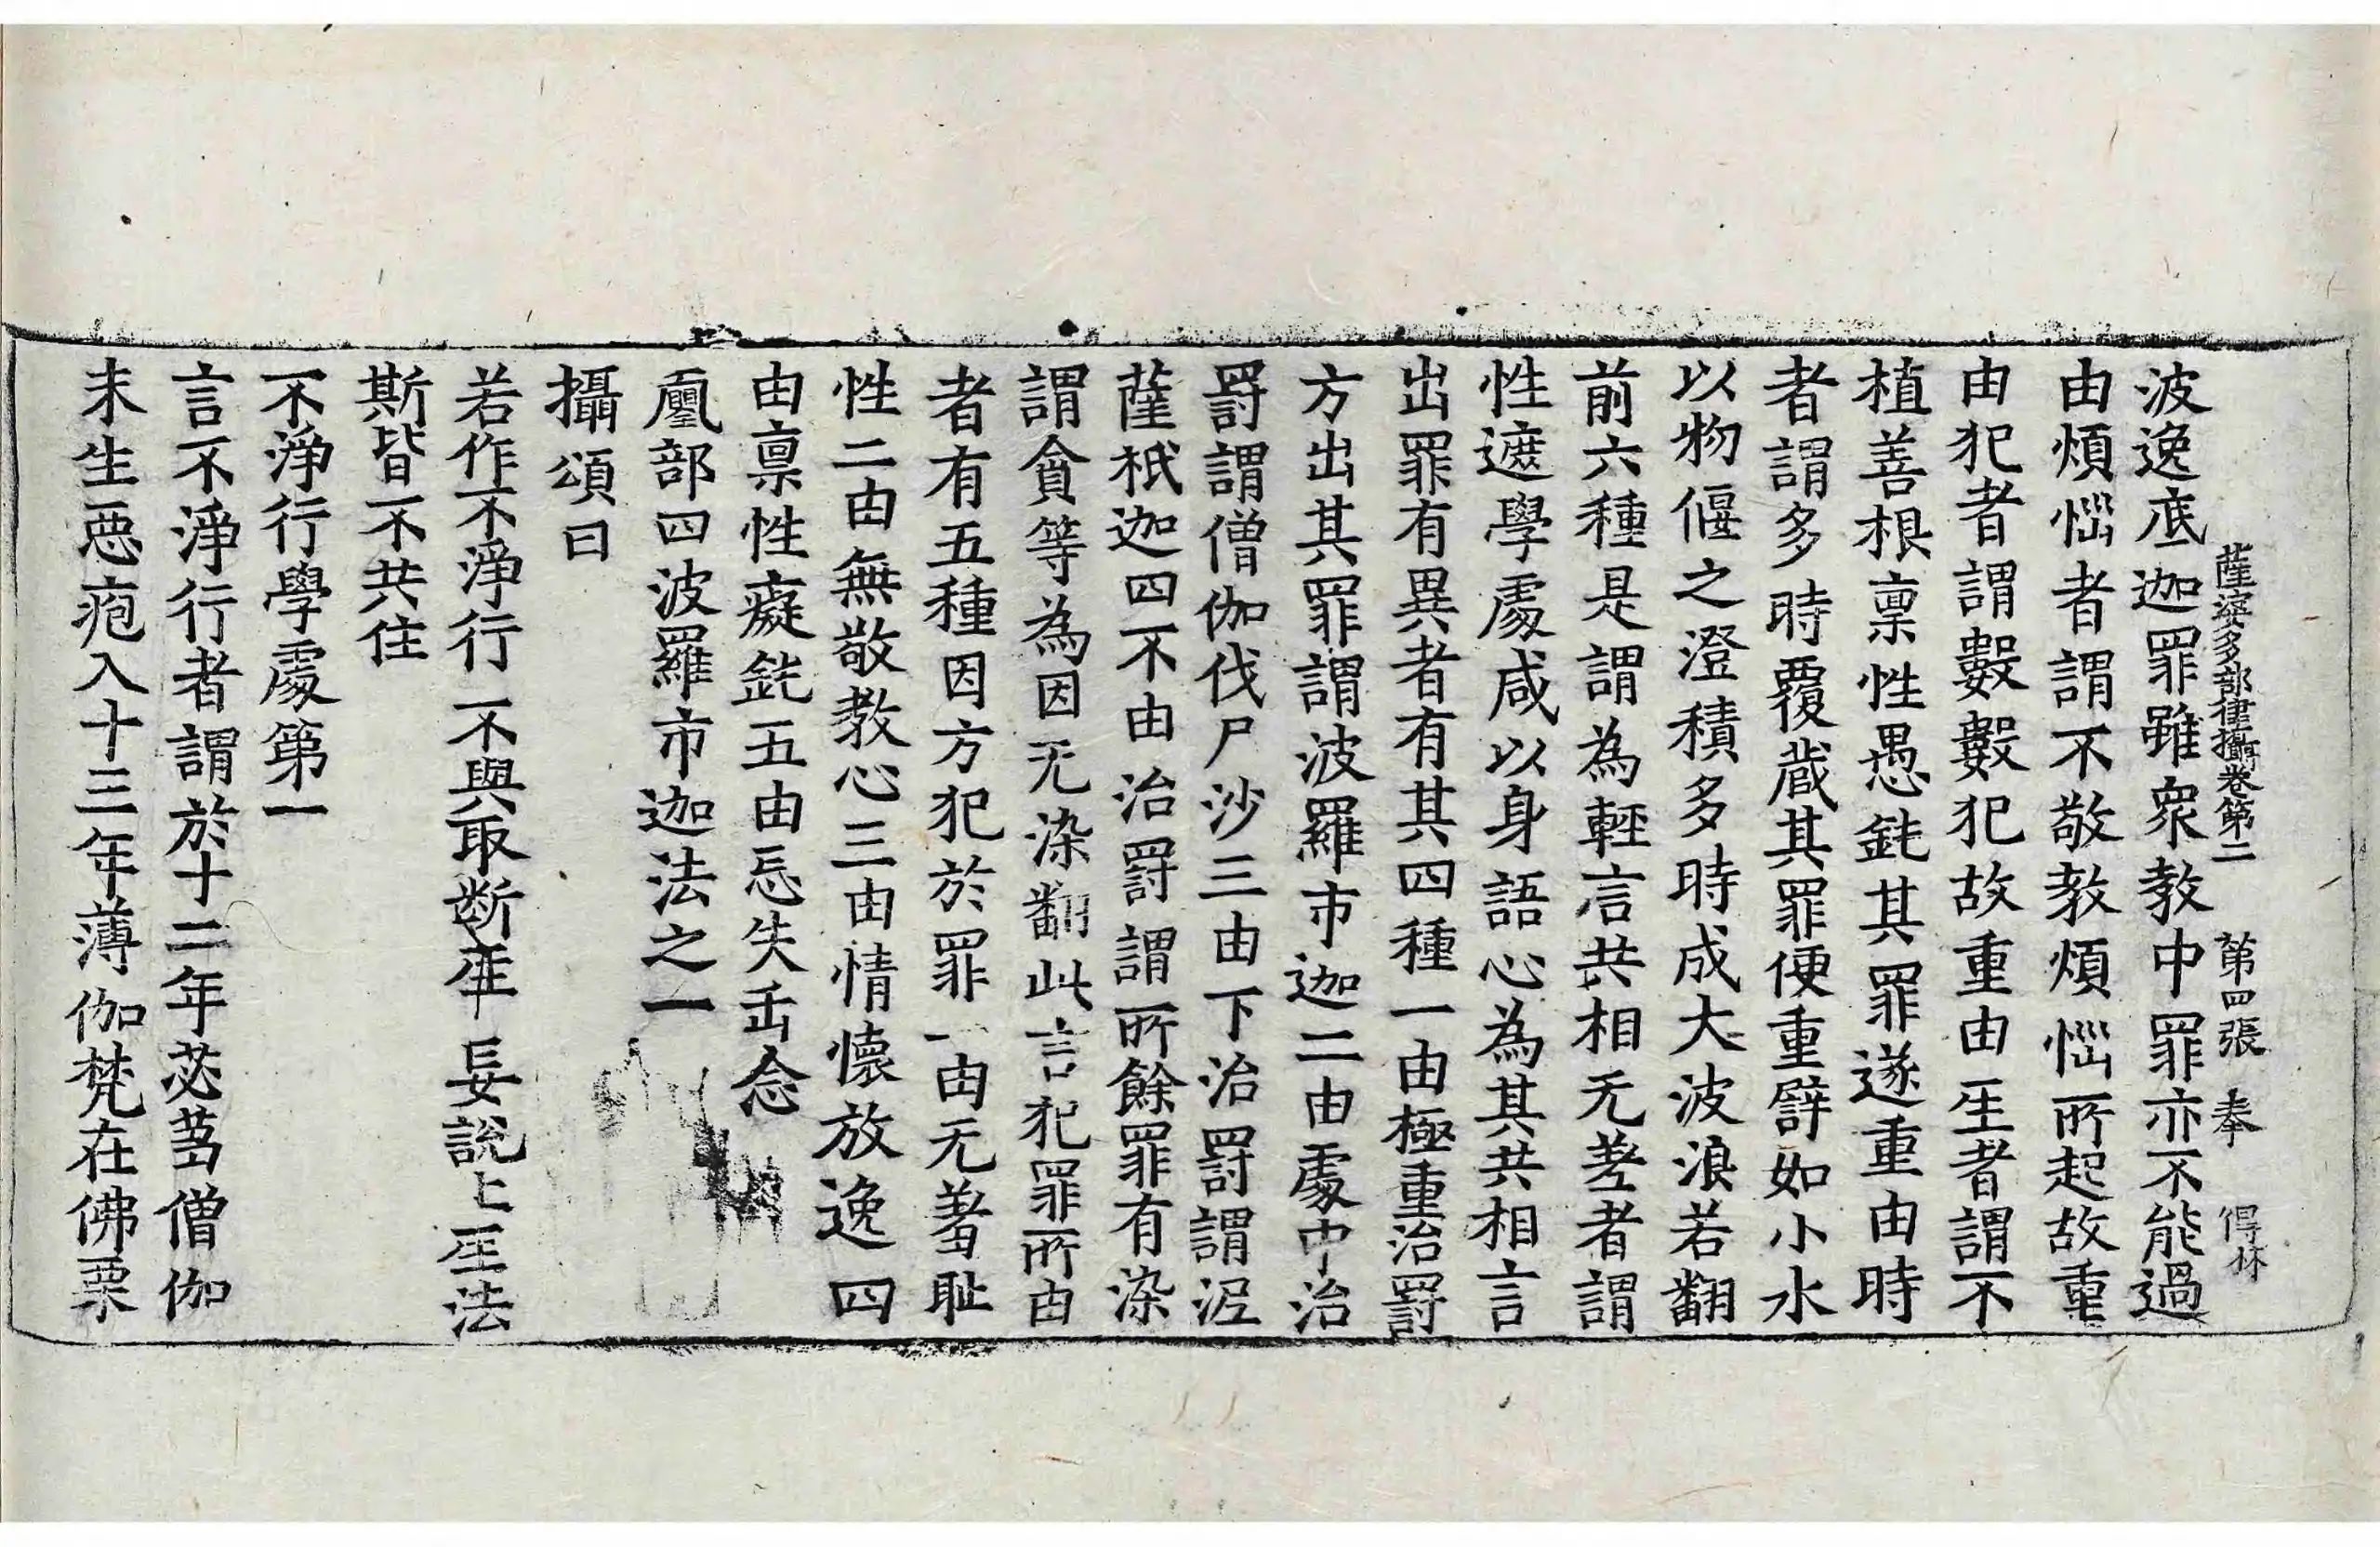 薩婆多部律攝卷第二　第四張　奉　得林
波逸底迦罪雖衆教中罪亦不能過
由煩惱者謂不敬教煩惱所起故重
由犯者謂數數犯故重由𤯔者謂不
植善根禀性愚鈍其罪遂重由時
者謂多時覆蔵其罪便重譬如小水
以物偃之澄積多時成大波浪若翻
前六種是謂為輕言共相无差者謂
性遮學處咸以身語心為其共相言
出罪有異者有其四種一由極重治罰
方出其罪謂波羅市迦二由處中治
罰謂僧伽伐尸沙三由下治罰謂泥
薩祇迦四不由治罰謂所餘罪有染
謂貪等為因无染翻此言犯罪所由
者有五種因方犯於罪一由无羞耻
性二由無敬教心三由情懷放逸四
由禀性癡鈍五由忘失𠫤念
𠄰部四波羅市迦法之一
攝頌曰
若作不淨行　不與取断𤯔　妄說上𤯔法
斯皆不共住
不淨行學處第一
言不淨行者謂於十二年苾芻僧伽
未生惡疱入十三年薄伽梵在佛栗